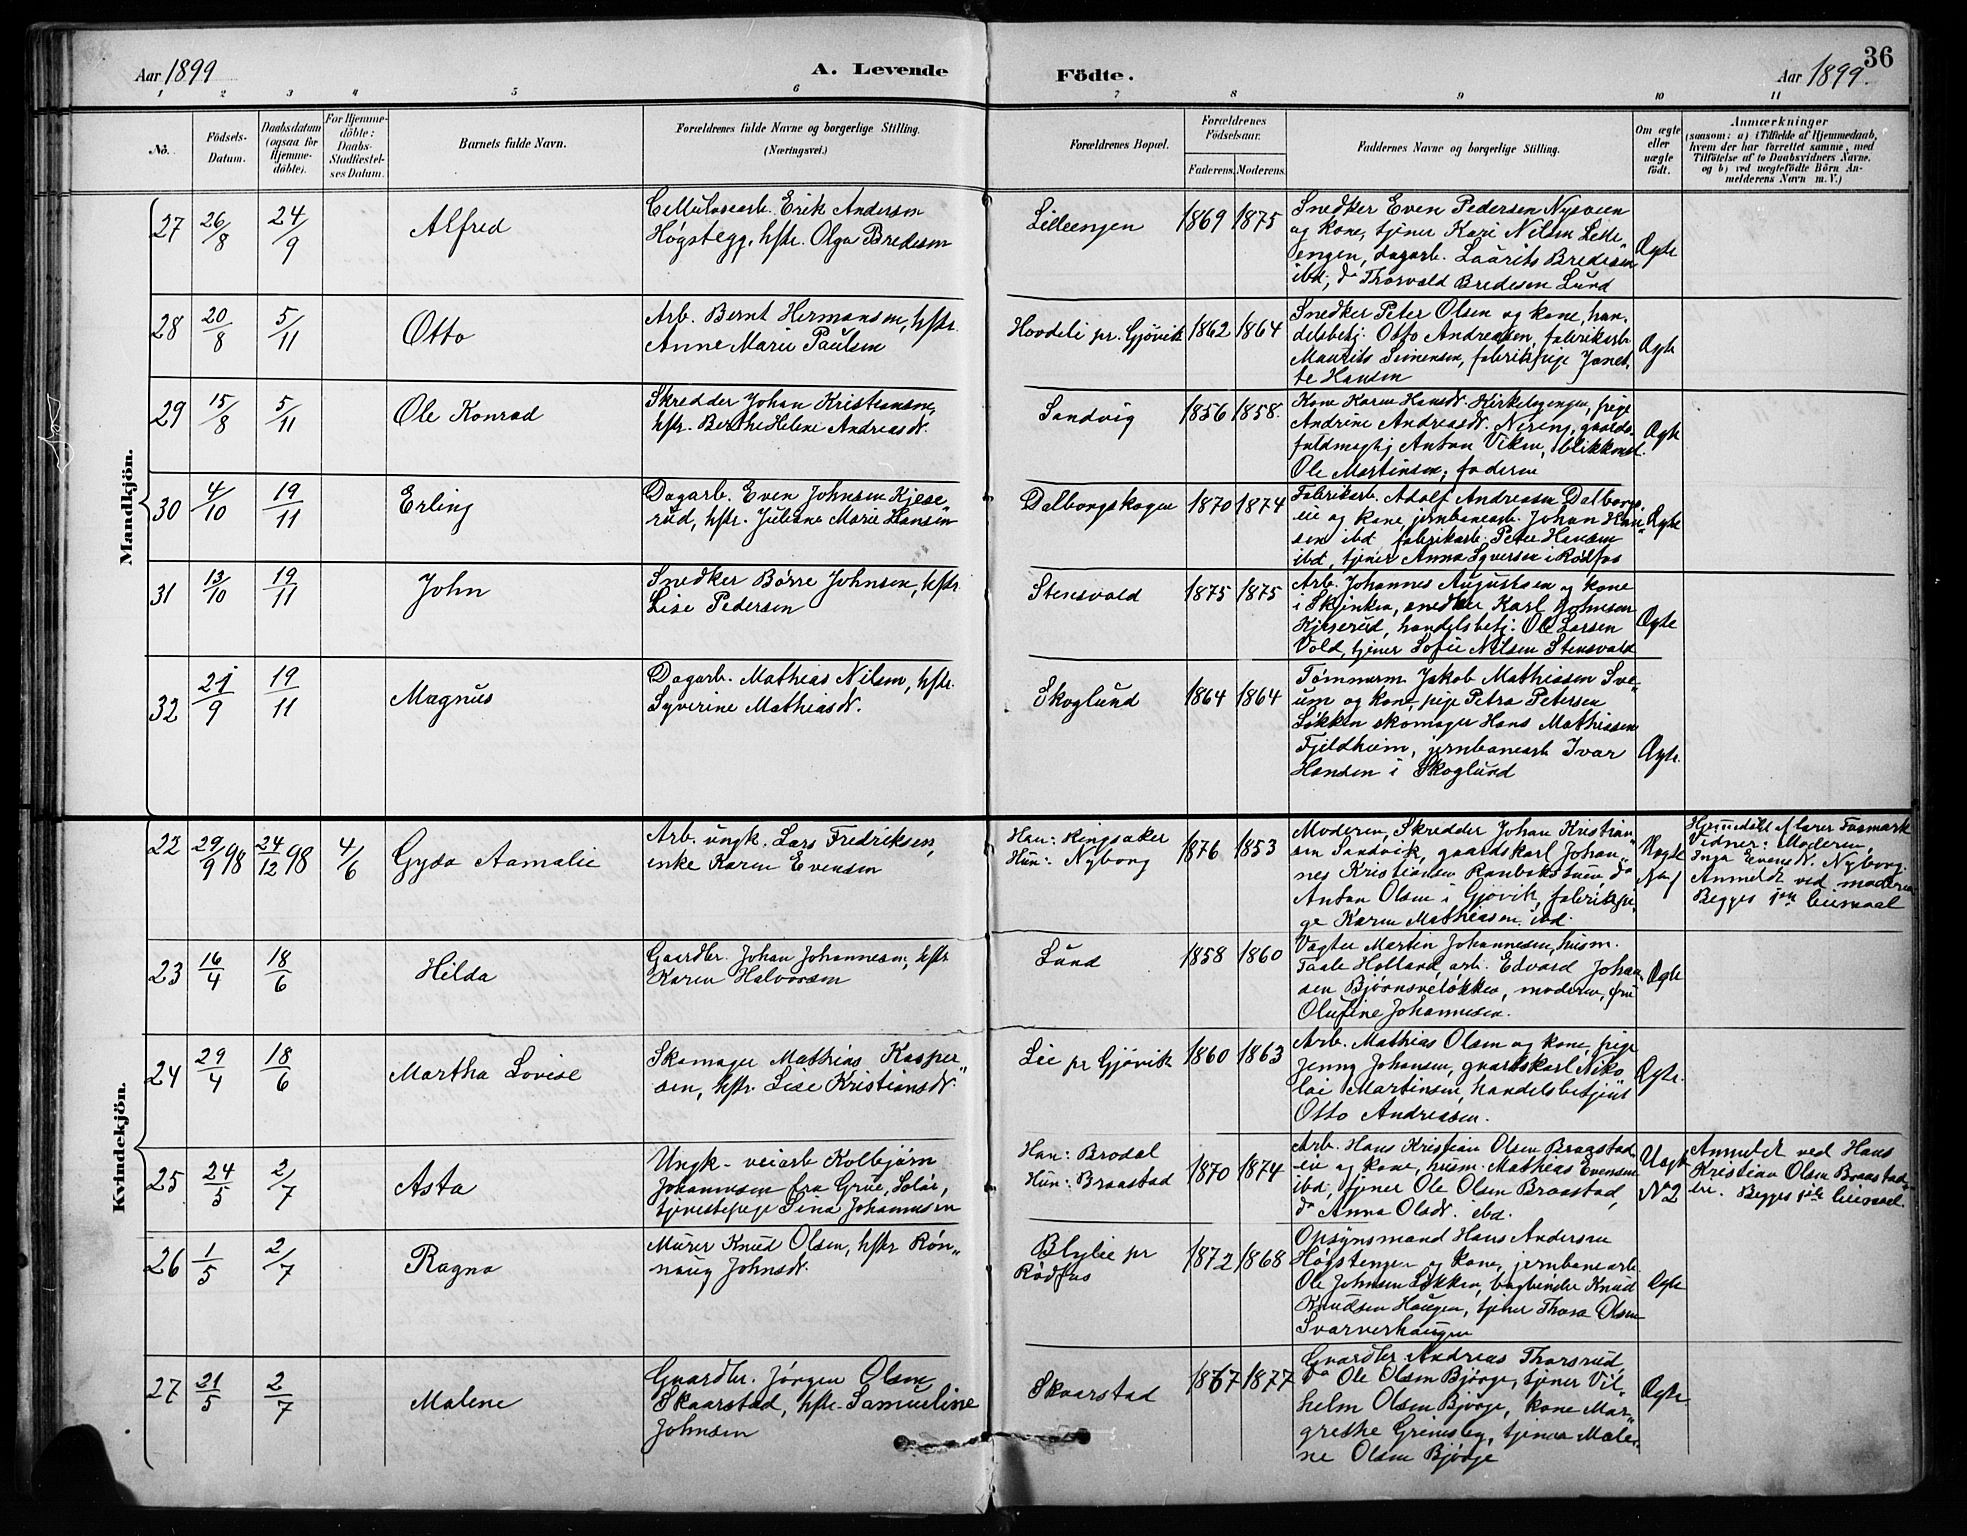 36
Aar 1899
A. Levende
Födte.
Aar 1899
1 2 3 4 5 6 7 8 9 10 11
No.
Födsels-
Datum.
Daabsdatum
(ogsaa for
Hjemme-
döbte).
For Hjemme-
döbte:
Daabs-
Stadfæstel-
ses Datum.
Barnets fulde Navn.
Forældrenes fulde Navne og borgerlige Stilling.
(Næringsvei.)
Forældrenes Bopæl.
Forældrenes
Födselsaar.
Faderens. Moderens.
Faddernes Navne og borgerlige Stilling.
Om ægte
eller
uægte
födt.
Anmærkninger
(saasom: a) i Tilfælde af Hjemmedaab,
hvem der har forrettet samme, med
Tilföielse af to Daabsvidners Navne,
og b) ved uægtefödte Börn An-
melderens Navn m. V.)
Mandkjön.
27 26/8 24/9 Alfred
Cellulosearb. Erik Andersen
Høgstegg, hstr. Olga Bredesen
Lilleengen 1869 1875
Snedker Even Pedersen Nysveen
og kone, tjener Kari Nilsen Lille-
engen, dagarb. Laurits Bredesen
ibd, do Thorvald Bredesen Lund
Ægte
28 20/8 5/11 Otto
Arb. Bernt Hermansen, hstr.
Anne Marie Paulsen
Hovdeli pr. Gjøvik 1862 1864
Snedker Peter Olsen og kone, han-
delsbetj. Otto Andreassen, fabrikarb.
Maurits Simensen, fabrikpige Janet-
te Hansen
Ægte
29 15/8 5/11 Ole Konrad
Skredder Johan Kristiansen,
hstr. Berthe Helene Andreasdr.
Sandvig 1856 1858.
Kone Karen Hansdr. Kirkebyengen, pige
Andrine Andreasdr. Nering, gaards-
fuldmægtig Anton Viken, blikkensl.
Ole Martinsen, faderen
Ægte
30 4/10 19/11 Erling
Dagarb. Even Johnsen Kjese-
rud, hstr. Juliane Marie Hansen
Dalborgskogen 1870 1874
Fabrikarb. Adolf Andreasen Dalborgs-
eie og kone, jernbanearb. Johan Han-
sen ibd, fabrikarb. Peter Hansen
ibd, tjener Anna Syversen i Rødfos
Ægte
31 13/10 19/11 John
Snedker Børre Johnsen, hstr.
Lise Pedersen
Stensvold 1875 1875
Arb. Johannes Augustsen og kone
i Skjinken, snedker Karl Johnsen
Kjeserud, handelsbetj. Ole Larsen
Vold, tjener Sofie Nilsen Stensvold
Ægte
32 21/9 19/11 Magnus
Dagarb. Mathias Nilsen, hstr.
Syverine Mathiasdr.
Skoglund 1864 1864
Tømmerm. Jakob Mathiasen Sve-
um og kone, pige Petra Petersen
Løkken skomager Hans Mathiasen
Fjeldheim, jernbanearb Ivar
Hansen i Skoglund
Ægte.
Kvindekjön.
22 29/9 98 24/12 98 4/6 Gyda Aamalie
Arb. ungk. Lars Fredriksen,
enke Karen Evensen
Han: Ringsaker
Hun: Nyborg
1876 1853
Moderen, Skredder Johan Kristian-
sen Sandvik, gaardskarl Johan-
nes Kristiansen do
Anton Olsen i Gjøvik, fabrikpi-
ge Karen Mathiasen ibd.
Uægte
No 1
Hjemmedøbt af lærer Faamark
Vidner: Moderen,
Inga Evensdr. Nyborg.
Anmeldt ved moderen
Begges 1ste leiermaal
23 16/4 18/6 Hilda
Gaardbr. Johan Johannesen, hstr
Karen Halvorsen
Lund 1858 1860
Vægter Martin Johannesen, husm.
Taale Holland, arb. Edvard Johan-
sen Bjørnsveløkken, moderen, fru
Olufine Johannesen.
Ægte
24 29/4 18/6 Martha Lovise
Skomager Mathias Kasper-
sen, hstr. Lise Kristiansdr.
Lie pr Gjøvik 1860 1863
Arb. Mathias Olsen og kone, pige
Jenny Johansen, gaardskarl Niko-
lai Martinsen, handelsbetjent
Otto Andreasen.
Ægte.
25 24/5 2/7 Asta
Ungk- veiarb Kolbjørn
Johannesen fra Grue, Solør,
tjenestepige Lina Johannesen
Han: Brodal
Hun: Braastad
1870 1874
Arb. Hans Kristian Olsen Braastad-
eie og kone, husm. Mathias Evensen
ibd, tjener Ole Olsen Braastad,
do Anna Olsdr. ibd.
Uægte
No 2
Anmeldt ved Hans
Kristian Olsen Braastad-
eie. Begges 1ste leiermaal.
26 1/5 2/7 Ragna
Murer Knud Olsen, hstr Røn-
naug Johnsdr.
Blylie pr
Rødfos
1872 1868
Opsynsmand Hans Andersen
Høgstengen og kone, jernbanearb.
Ole Johnsen Løkken, bogbinder Knud
Knudsen Haugen, tjener Thora Olsen
Svarverhaugen
Ægte
27 21/5 2/7 Malene
Gaardbr. Jørgen Olsen
Skaarstad, hstr. Samueline
Johnsen
Skaarstad 1867 1877
Gaardbr. Andreas Thorsrud,
do Ole Olsen Bjørge, tjener Vil-
helm Olsen Bjørge, kone Mar-
grethe Grimsby, tjener Male-
ne Olsen Bjørge
Ægte